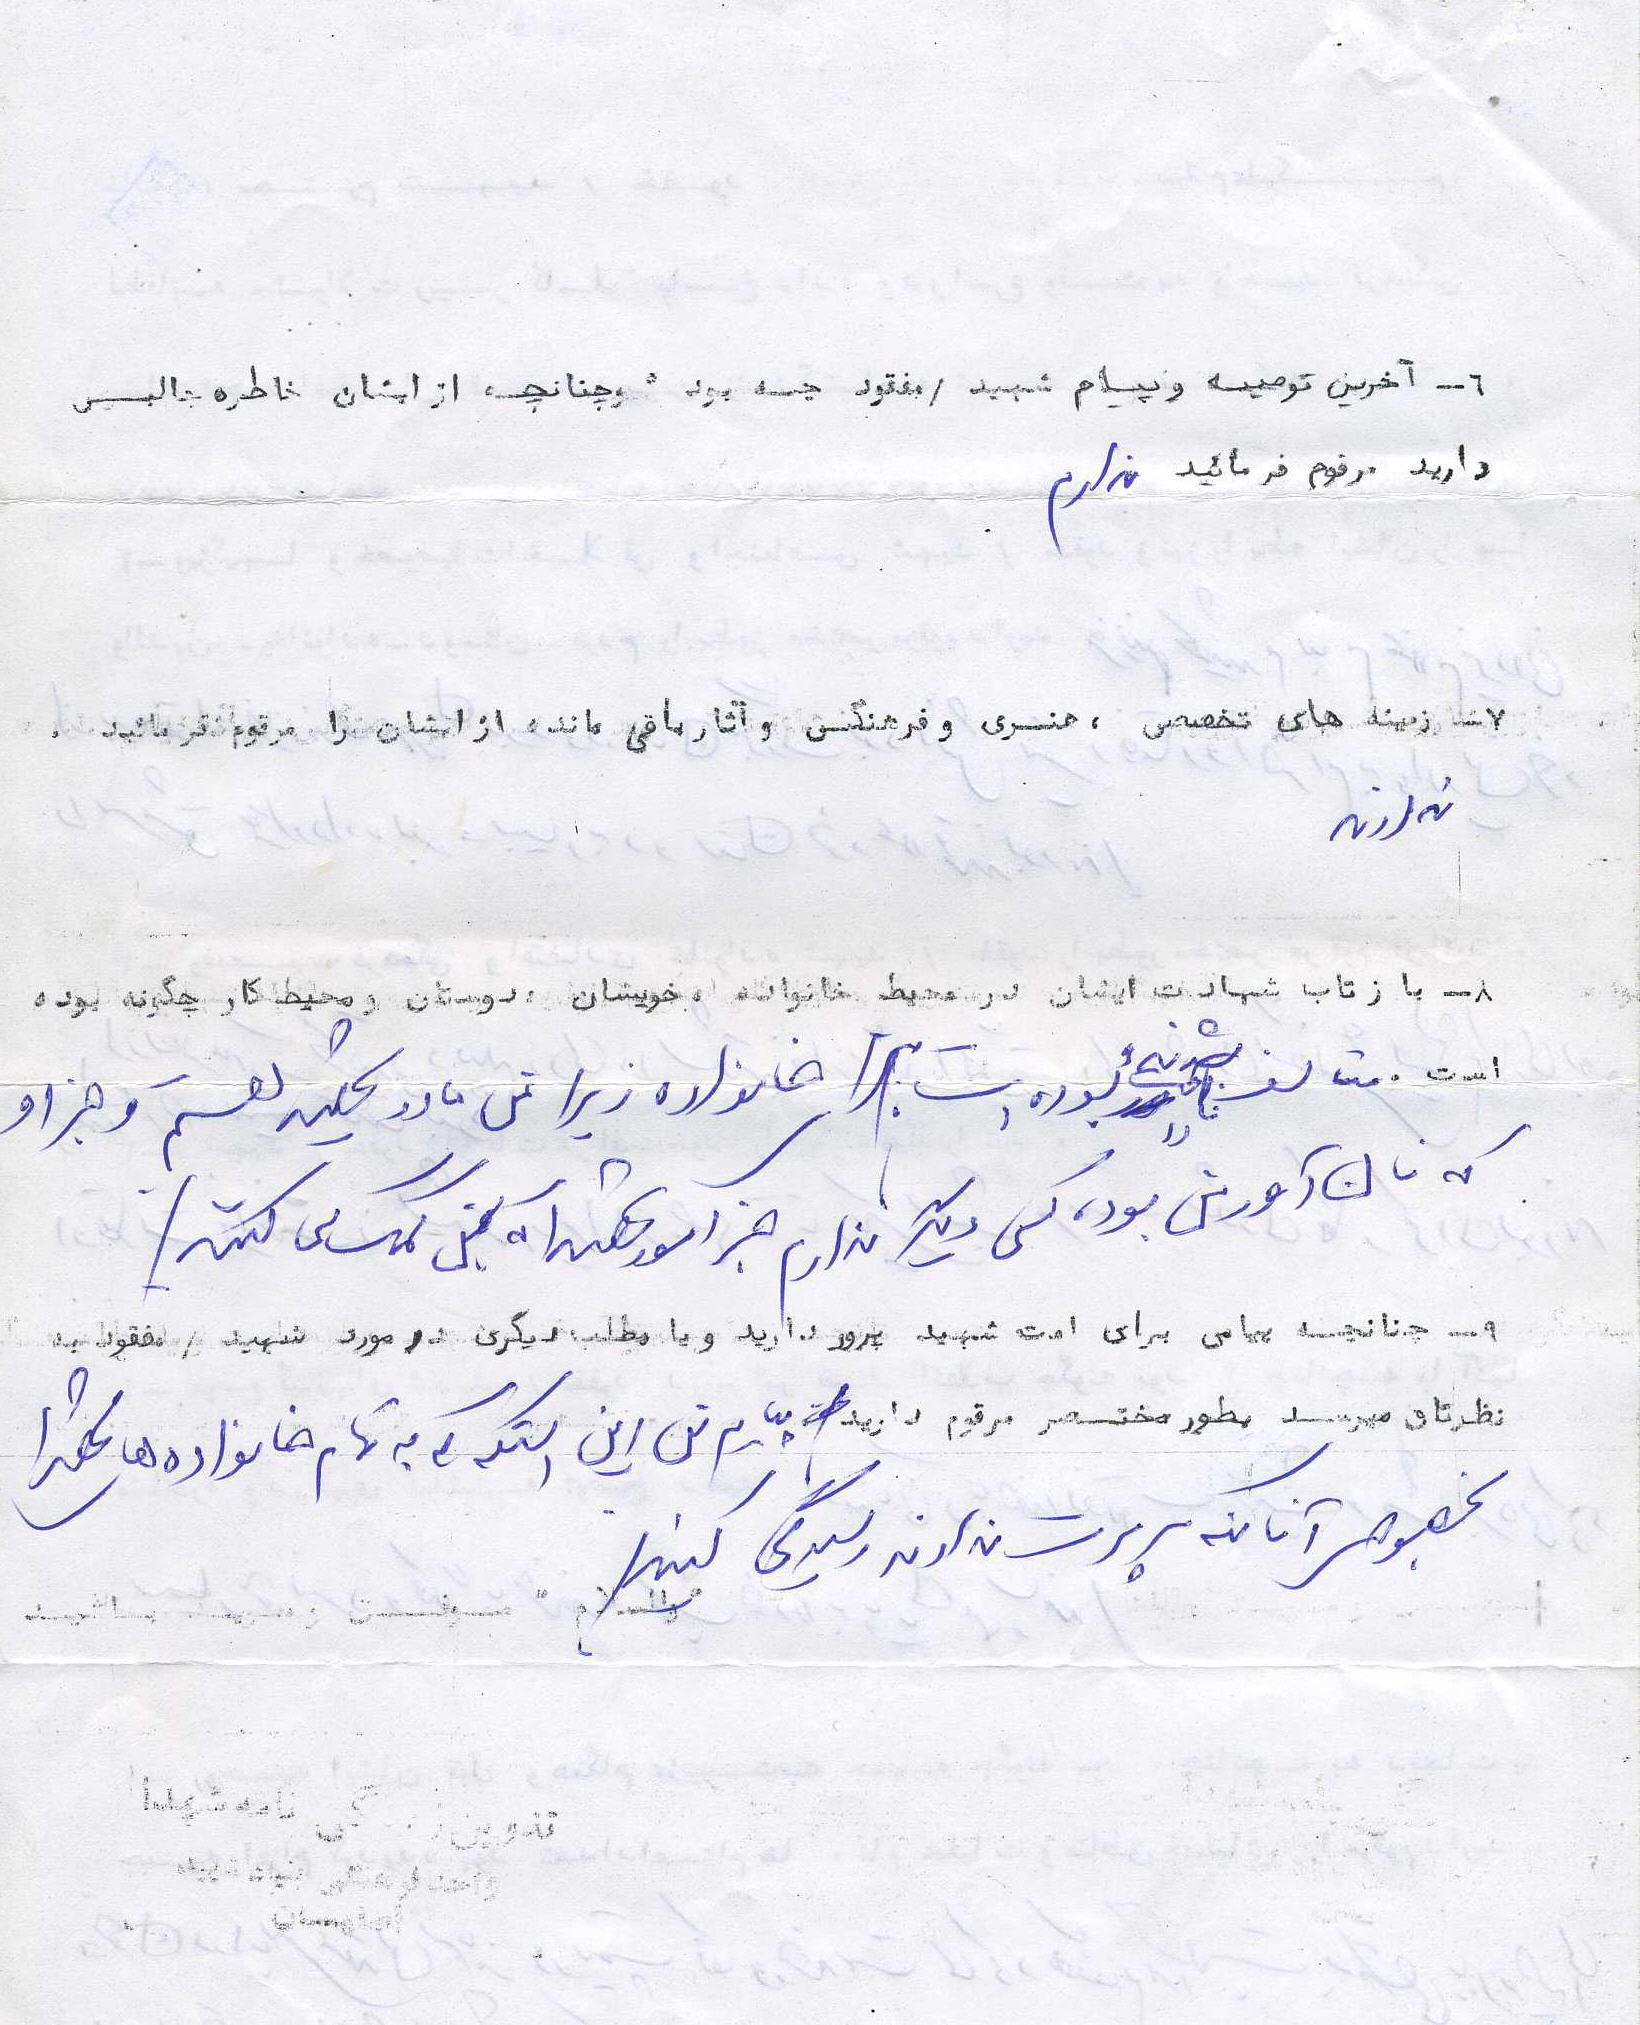 ٦ـ آخرین توصیه و پیام شهید / مفقود چه بود " وچنانچه از ایشان خاطره جالبی
دارید مرقوم فرمائید ندارم
٧ـ زمینه های تخصصی ، هنری و فرهنگی و آثار باقی مانده از ایشان را مرقوم فرمائید .
ندارند
٨ـ با ز تاب شهادت ایشان در محیط خانواده ، خویشان ، دوستان و محیط کار چگونه بوده
است . متاسفـ بوده است برای خانواده زیرا من مادر هستم و جز او
که نان آورش بود، کسی دیگر ندارم جز امور که کمک می کنند
٩ـ چنانچه پیامی برای امت شهید پرور دارید و یا مطلب دیگری در مورد شهید / مفقود به
نظرتان میرسد بطور مختصر مرقوم دارید پیام من این است که به تمام خانواده های شهدا
بخصوص آنانکه سرپرست ندارند رسیدگی کنید
والسلام " موفـق و مویـد باشید
تدوین زندگی نامه شهدا
واحد فرهنگی بنیاد شهید